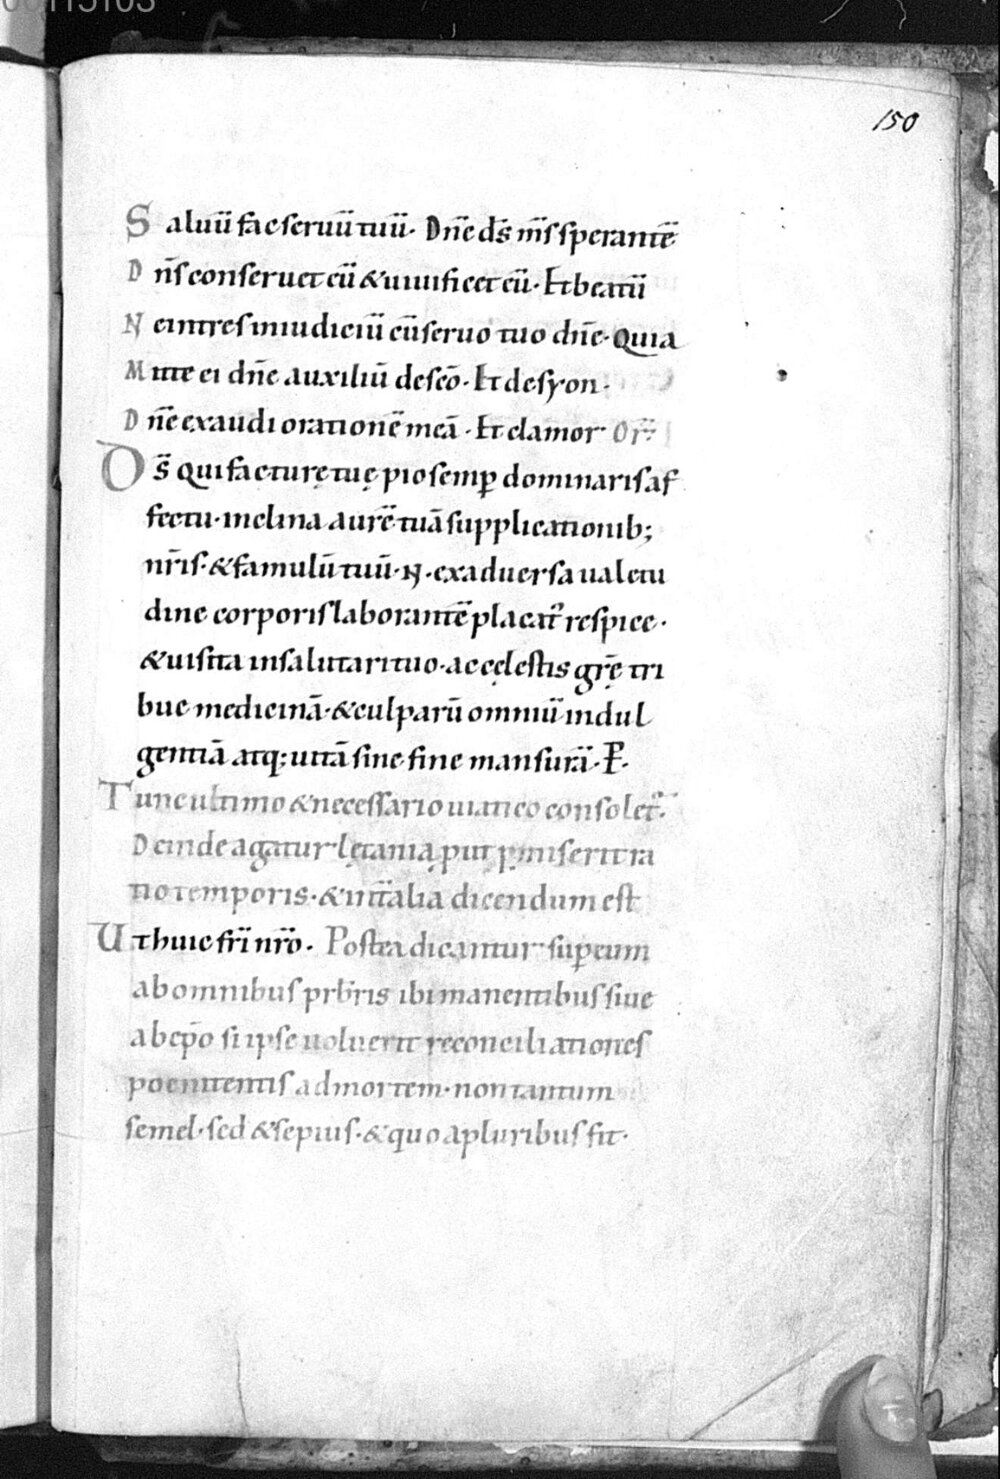 150
Saluū fac seruū tuū. Dn̄e ds̄ m̄s sperantē
Dn̄s conseruet eū & uiuificet eū. Et beatū
N eintres in iudiciū cū seruo tuo dn̄e. Quia
Mitte ei dn̄e auxiliū de scō. Et de syon.
Dn̄e exaudi orationē meā. Et clamor Or̄:
Ds̄ qui facturę tuę pio semp̄ dominaris af
fectu. inclina aurē tuā supplicationib;
nr̄is. & famulū tuū. N. ex aduersa ualetu
dine corporis laborantē placat᷒ respice.
& uisita in salutari tuo. ac cęlestis gr̄ę tri
bue medicinā. & culparū omniū indul
gentiā atq; uitā sine fine mansurā. P.
Tunc ultimo & necessario uiatico consolet᷒.
Deinde agatur lętania, put p̄miserit ra
tio temporis. & int̄ alia dicendum est
Ut huic fr̄i nr̄o. Postea dicantur sup̄ eum
ab omnibus prb̄ris ibi manentibus siue
ab ep̄o si ipse uoluerit reconciliationes
poenitentis ad mortem. non tantum
semel. sed & sepius. & quo a pluribus fit.